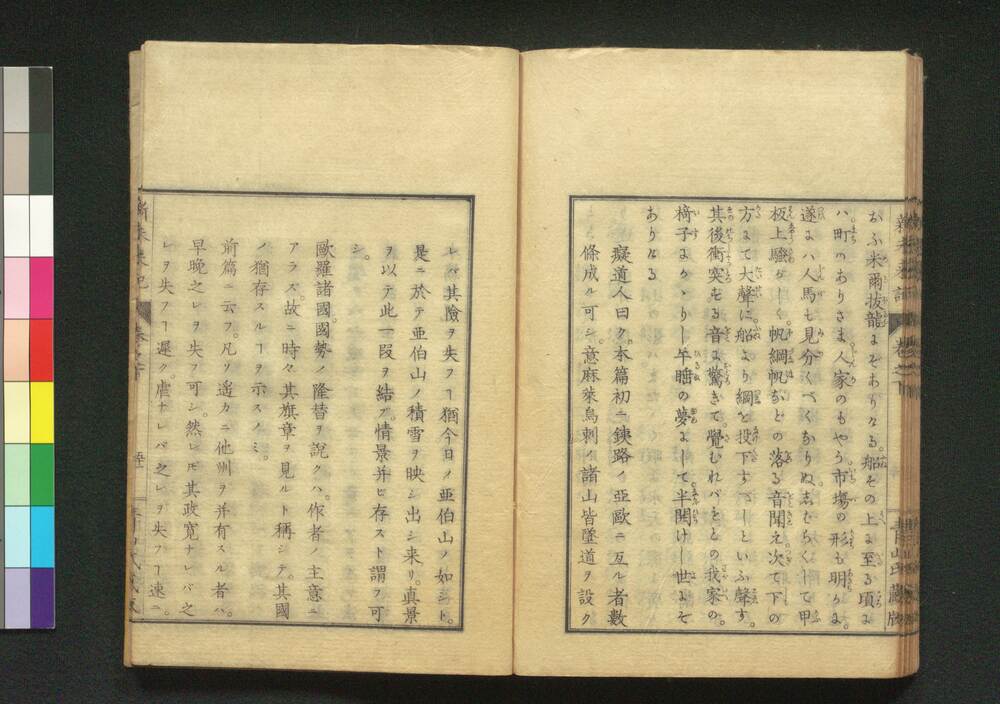 おふ米爾抜龍まぞありなる。船その上ま至る頃よ
ハ。町のありさま人家のもやう。市塲の形も明らかよ。
遂よハ人馬も見分くべくなりぬ。志ばらくして甲
板上騒ぎしく。帆綱帆などの落る音聞え。次て下の
方まて大聲に。船より綱を投下すべしといふ聲す。
其後衝突せる音よ驚きて。覺むれバもとの我家の。
椅子よかゝりし午睡の夢よして。半開けし世よぞ
ありける
癡道人曰ク。本篇初ニ鐵路ノ亞歐ニ亙ル者數
條成ル可シ。意麻萊烏剌ノ諸山皆墜道ヲ設ク
レバ其險ヲ失フヿ猶今日ノ亜伯山ノ如シト。
是ニ於テ亜伯山ノ積雪ヲ映シ出シ来リ。真景
ヲ以テ此一段ヲ結ブ。情景并ヒ存スト謂フ可
シ。
歐羅諸國國勢ノ隆替ヲ說クハ。作者ノ主意ニ
アラズ。故ニ時々其旗章ヲ見ルト稱シテ。其國
ノ猶存スルヿヲ示スノミ。
前篇ニ云フ。凡ソ遥カニ他洲ヲ并有スル者ハ。
早晚之レヲ失フ可シ。然レ𪜈其政寛ナレバ之
レヲ失フヿ遲ク。虐ナレバ之レヲ失フヿ速ニ。
新未来記
青山氏藏版